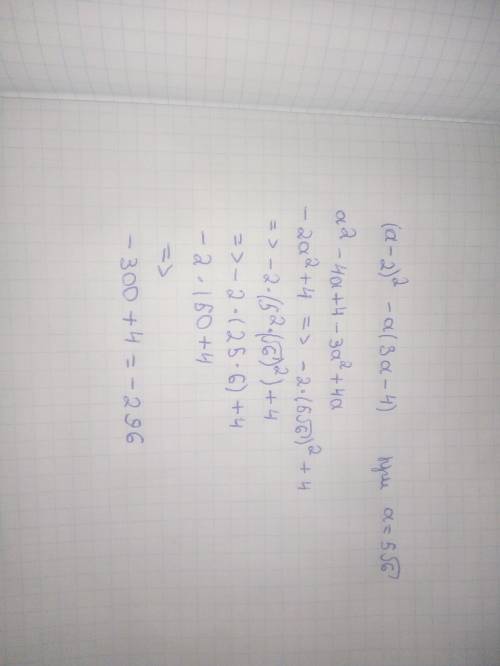 (a-2)² - a(3a-4) при a=5√6
a² - 4a+4-3a²+4a
-2a²+4 => -2·(5√6)²+4
=> -2·(5²·(√6)²)+4
=> -2·(25·6)+4
-2·150+4
=>
-300+4=-296